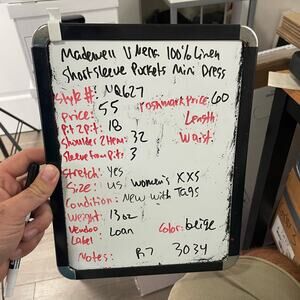 Madewell V Neck 100% Linen
Short sleeve Pockets Mini Dress
Style #: NQ627
Price: 55 Poshmark Price: 60
Pit 2 Pit: 18 Length:
Shoulder 2 Hem: 32 Waist:
Sleeve from Pit: 3
Stretch: Yes
Size: US Women's XXS
Condition: New with Tags
Weight: 13 oz
Vendoo Label Loan Color: beige
Notes: B7 3034